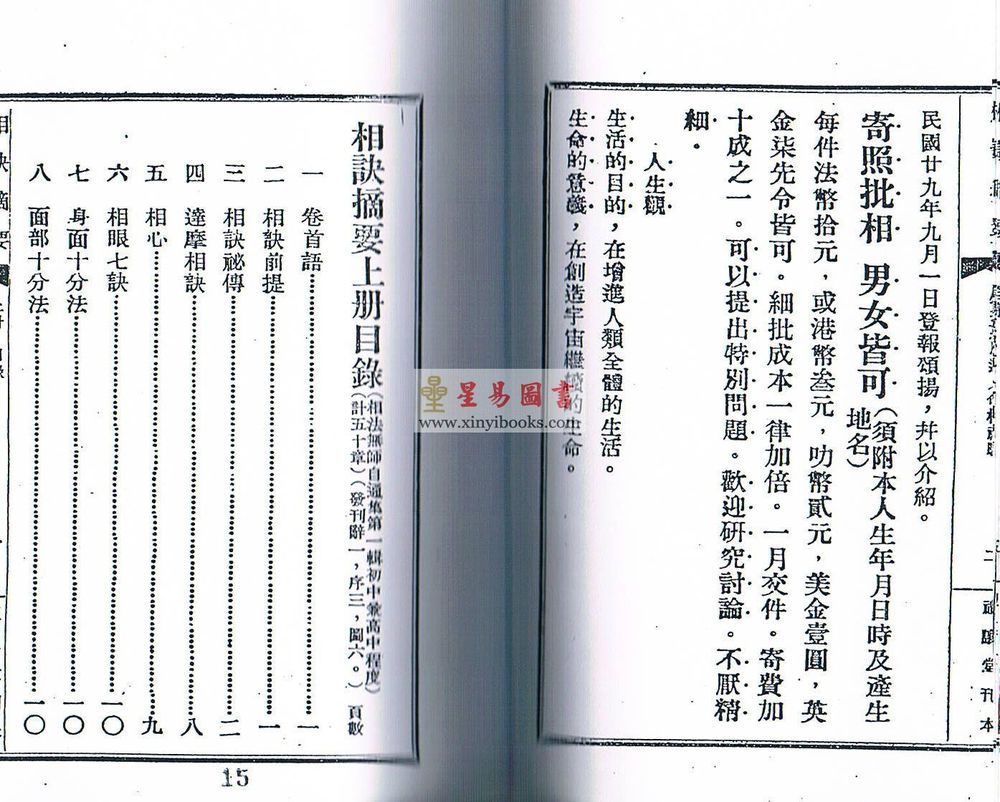 民國廿九年九月一日登報頌揚，幷以介紹。
寄照批相 男女皆可（須附本人生年月日時及產生地名）
每件法幣拾元，或港幣叁元，叻幣貳元，美金壹圓，英
金柒先令皆可。細批成本一律加倍。一月交件。寄費加
十成之一。可以提出特別問題。歡迎研究討論。不厭精
細．
人生觀
生活的目的，在增進人類全體的生活。
生命的意義，在創造宇宙繼續的生命。
相訣摘要上册目錄（相法無師自通集第一輯初中兼高中程度）
（計五十章）（發刊辭一，序三，圖六。）頁數
一 卷首語 一
二 相訣前提 一
三 相訣祕傳 二
四 達摩相訣 八
五 相心 九
六 相眼七訣 一〇
七 身面十分法 一〇
八 面部十分法 一〇
相訣摘要
15
星易圖書
www.xinyibooks.com